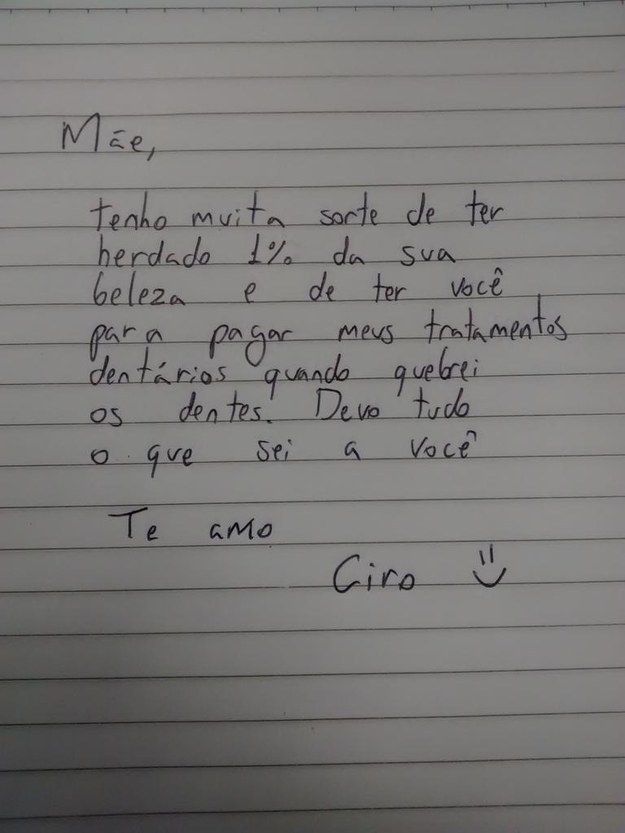 Mãe,
tenho muita sorte de ter
herdado 1% da sua
beleza e de ter você
para pagar meus tratamentos
dentários quando quebrei
os dentes. Devo tudo
o que sei a você
Te amo
Ciro